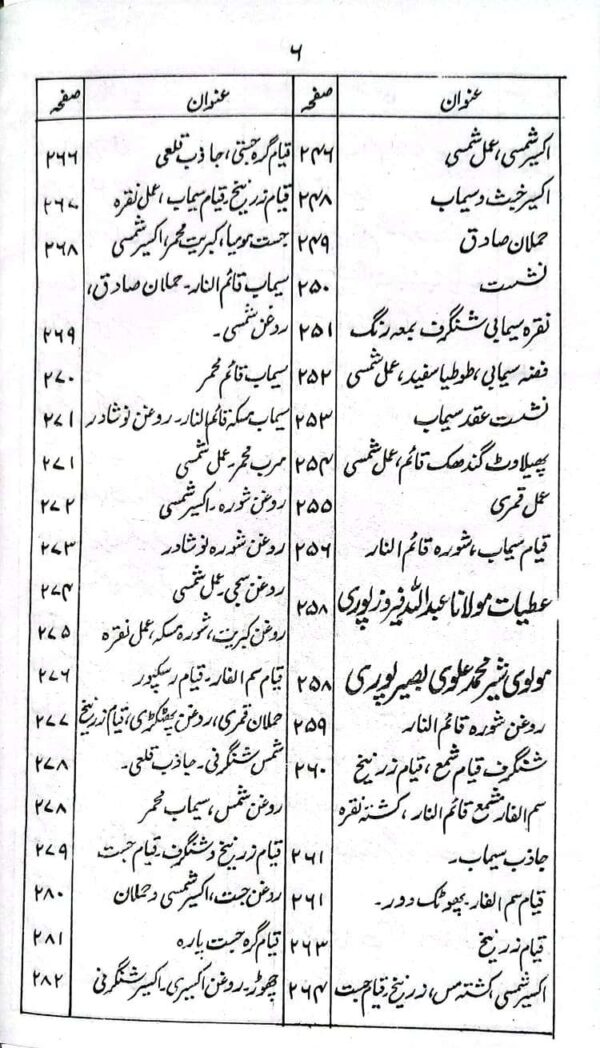 ۶
عنوان صفحہ
اکسیر شمسی، عمل شمسی ۲۴۶
اکسیر خبث و سیماب ۲۴۸
حملان صادق ۲۴۹
نشست ۲۵۰
نقرہ سیمابی شنگرف بمعہ رنگ ۲۵۱
فضہ سیمابی، طوطیا سفید، عمل شمسی ۲۵۲
نشست عقد سیماب ۲۵۳
پھیلاوٹ گندھک قائم، عمل شمسی ۲۵۴
عمل قمری ۲۵۵
قیام سیماب، شورہ قائم النار ۲۵۶
عطیات مولانا عبداللہ فیروزپوری ۲۵۸
مولوی شیر محمد علوی بصیرپوری ۲۵۸
روغن شورہ قائم النار ۲۵۹
شنگرف قیام شمع، قیام زرنیخ ۲۶۰
سم الفار مشمع قائم النار، کشتہ نقرہ
جاذب سیماب۔ ۲۶۱
قیام سم الفار۔ پھوٹک دور۔ ۲۶۱
قیام زرنیخ ۲۶۳
اکسیر شمسی، کشتہ مس، زرنیخ، قیام جست ۲۶۴
عنوان صفحہ
قیام گرہ جستی، جاذب قلعی ۲۶۶
قیام زرنیخ۔ قیام سیماب، عمل نقرہ ۲۶۷
جست مومیا، کبریت محمر، اکسیر شمسی ۲۶۸
سیماب قائم النار۔ حملان صادق،
روغن شمسی۔ ۲۶۹
سیماب قائم محمر ۲۷۰
سیماب مسکہ قائم النار۔ روغن نوشادر ۲۷۱
سرب محمر۔ عمل شمسی ۲۷۱
روغن شورہ۔ اکسیر شمسی ۲۷۲
روغن شورہ نوشادر ۲۷۳
روغن سجی۔ عمل شمسی ۲۷۴
روغن کبریت، شورہ مسکہ، عمل نقرہ ۲۷۵
قیام سم الفار۔ قیام رسکپور ۲۷۶
حملان قمری، روغن پھٹکڑی، قیام زرنیخ ۲۷۷
شمس شنگرفی۔ جاذب قلعی۔ ۲۷۸
روغن شمس، سیماب محمر ۲۷۸
قیام زرنیخ و شنگرف۔ قیام جست ۲۷۹
روغن جست، اکسیر شمسی و حملان ۲۸۰
قیام گرہ جست پارہ ۲۸۱
چھوڑ۔ روغن اکسیری۔ اکسیر شنگرفی ۲۸۲